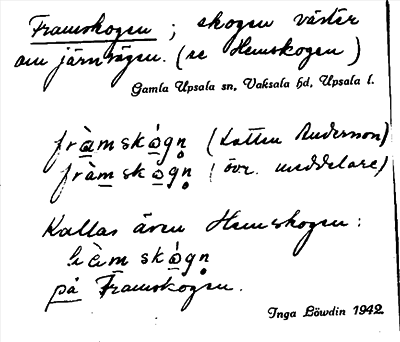 Framskogen ; skogen väster
om järnvägen. (se Hemskogen)
Gamla Upsala sn, Vaksala hd, Upsala l.
fràmskógn̥ (Lotten Anderson)
fràmskógn̥ (övr. meddelare)
Kallas även Hemskogen:
hèmskógn̥
på Framskogen.
Inga Löwdin 1942.